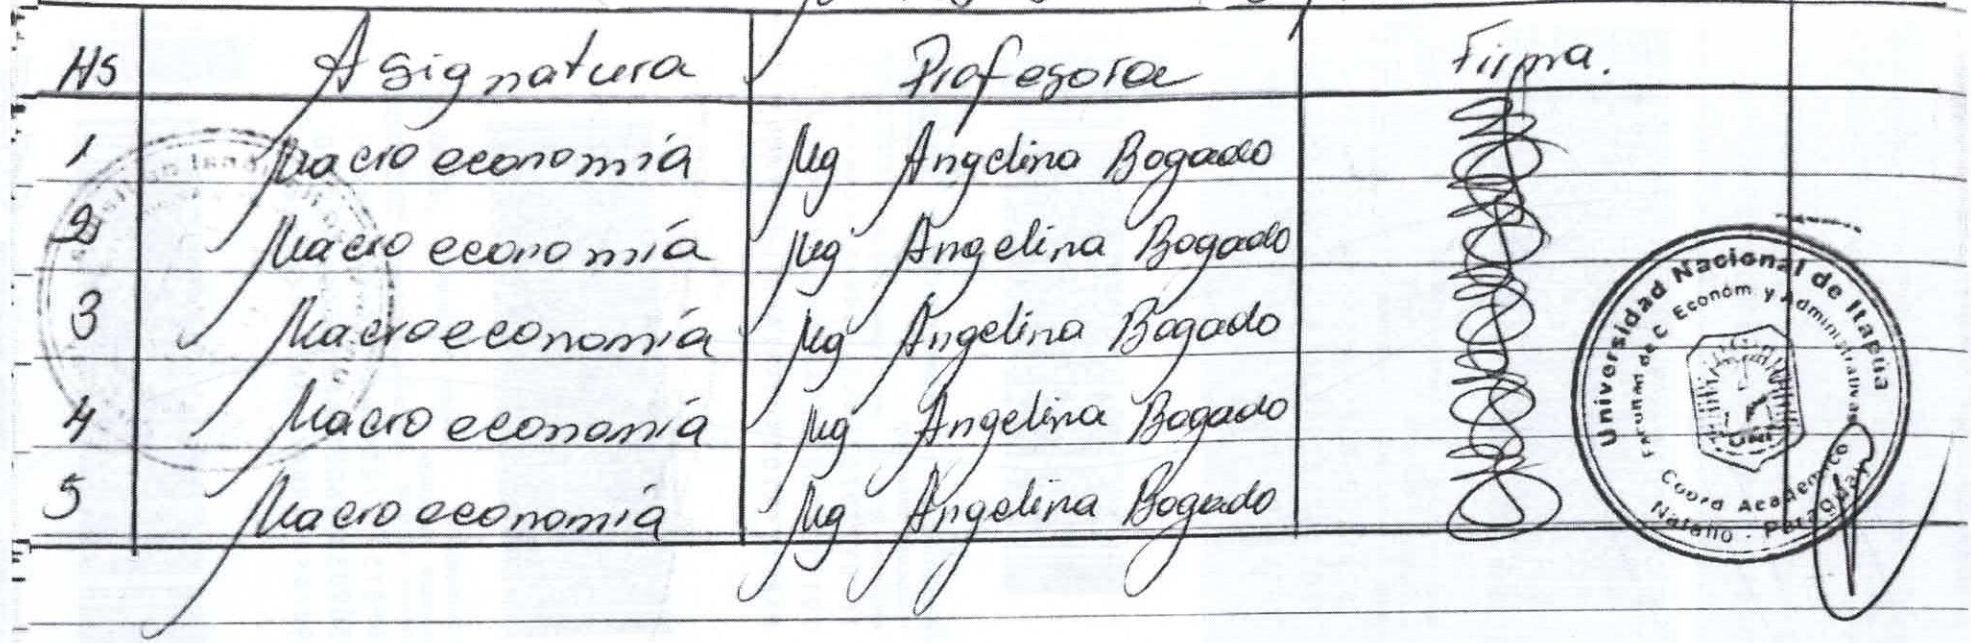 Hs Asignatura Profesora Firma.
1 Macroeconomía Mg Angelina Bogado
2 Macroeconomía Mg Angelina Bogado
3 Macroeconomía Mg Angelina Bogado
4 Macroeconomía Mg Angelina Bogado
5 Macroeconomía Mg Angelina Bogado
Universidad Nacional de Itapúa
de C Econom. y Administrativas
UNI
Coord Académico
Natalio - Paraguay